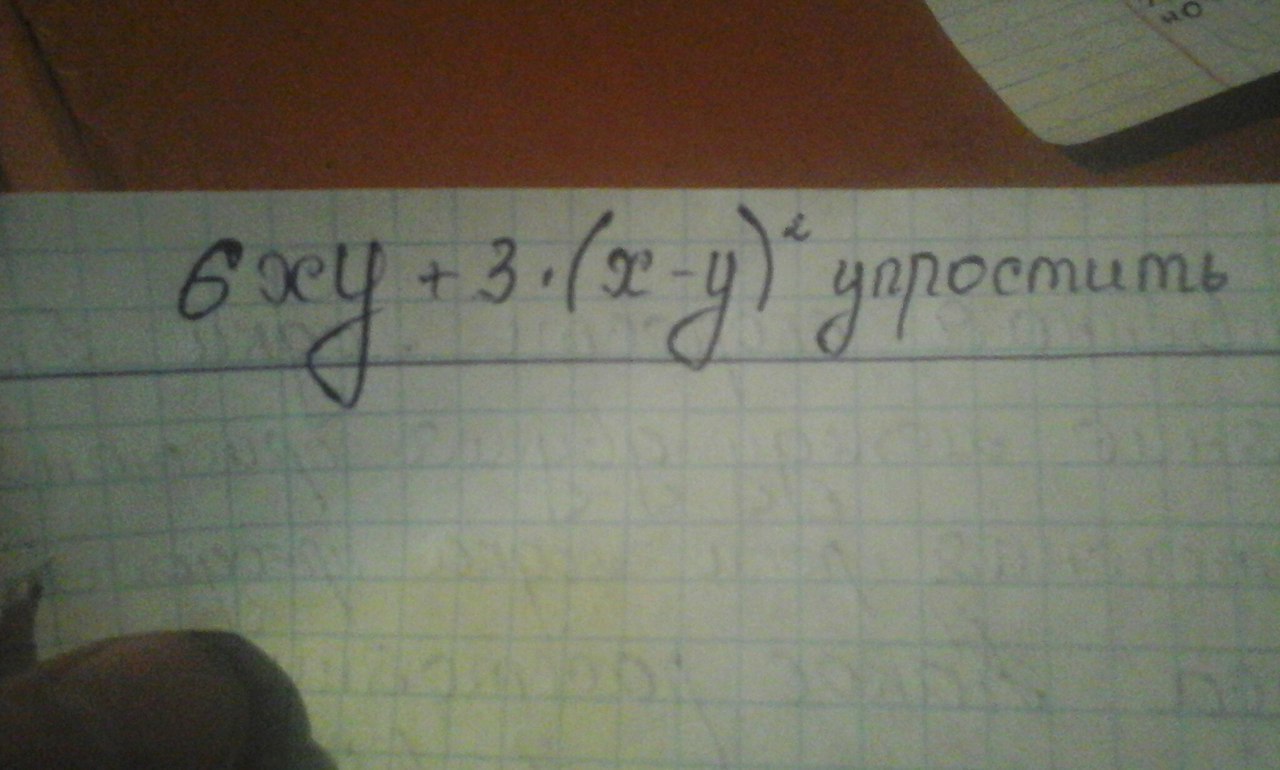 6xy + 3·(x-y)² упростить